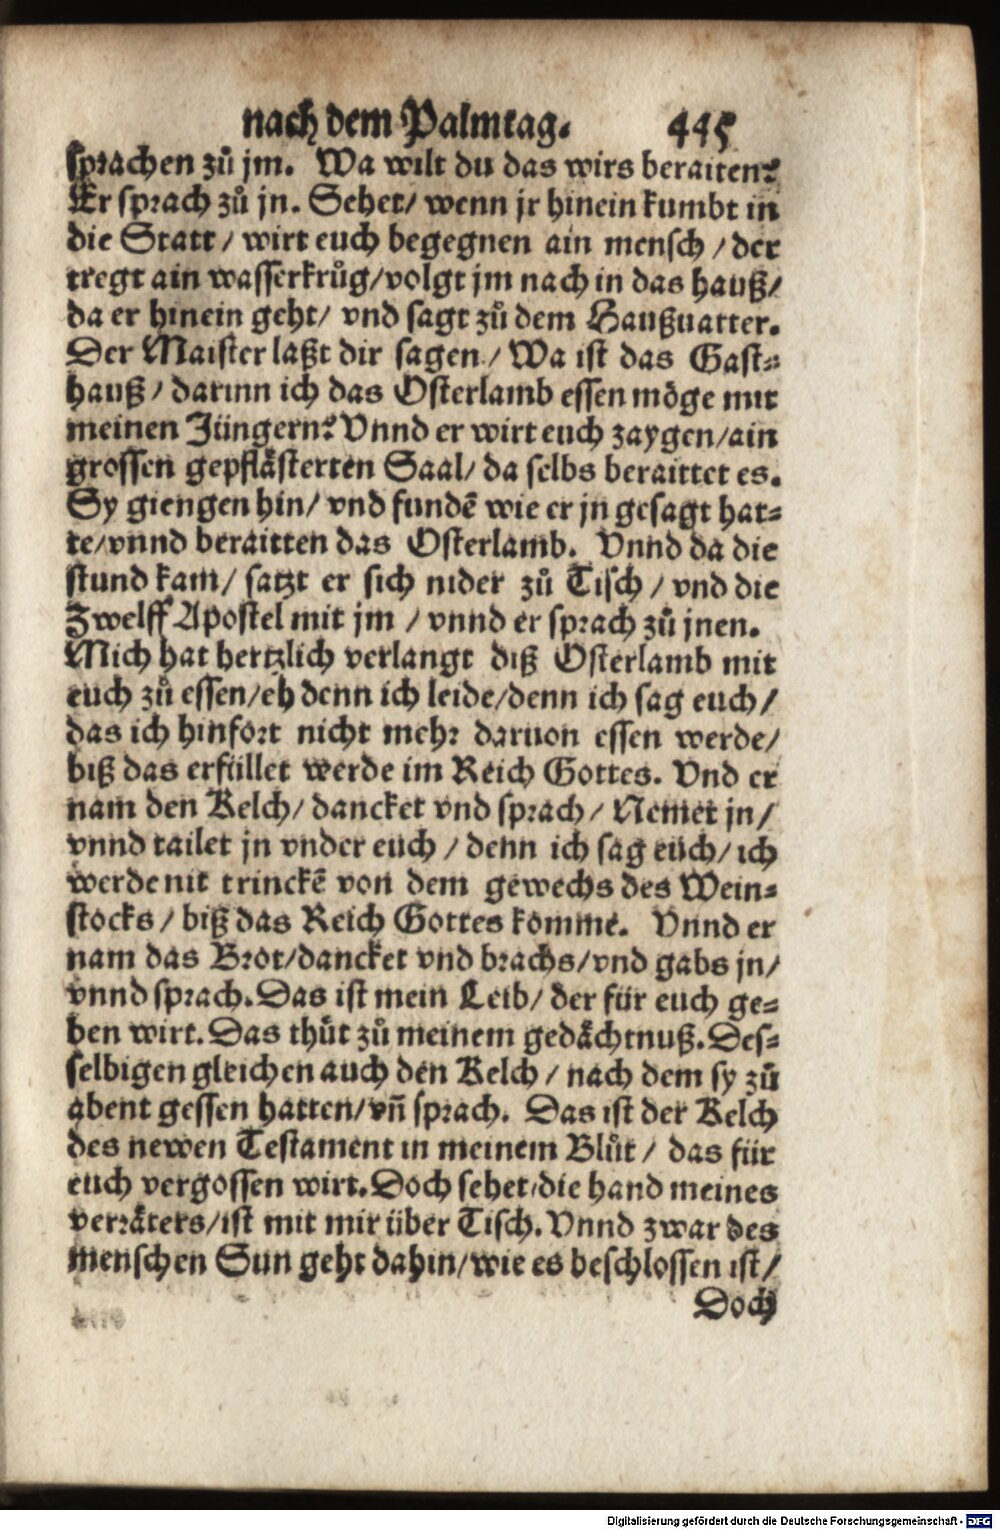 nach dem Palmtag. 445
sprachen zů jm. Wa wilt du das wirs beraiten?
Er sprach zů jn. Sehet/ wenn jr hinein kumbt in
die Statt/ wirt euch begegnen ain mensch/ der
tregt ain wasserkrůg/volgt jm nach in das hauß/
da er hinein geht/ vnd sagt zů dem Haußuatter.
Der Maister laßt dir sagen/ Wa ist das Gast-
hauß/ darinn ich das Osterlamb essen möge mit
meinen Jüngern? Vnnd er wirt euch zaygen/ain
grossen gepflästerten Saal/ da selbs beraittet es.
Sy giengen hin/ vnd fundē wie er jn gesagt hat-
te/vnnd beraitten das Osterlamb. Vnnd da die
stund kam/ satzt er sich nider zů Tisch/ vnd die
Zwelff Apostel mit jm/ vnnd er sprach zů jnen.
Mich hat hertzlich verlangt diß Osterlamb mit
euch zů essen/eh denn ich leide/denn ich sag euch/
das ich hinfort nicht mehr daruon essen werde/
biß das erfüllet werde im Reich Gottes. Vnd er
nam den Kelch/ dancket vnd sprach/ Nemet jn/
vnnd tailet jn vnder euch/ denn ich sag euch/ ich
werde nit trinckē von dem gewechs des Wein-
stocks/ biß das Reich Gottes komme. Vnnd er
nam das Brot/dancket vnd brachs/vnd gabs jn/
vnnd sprach. Das ist mein Leib/ der für euch ge-
ben wirt. Das thůt zů meinem gedächtnuß. Des-
selbigen gleichen auch den Kelch/ nach dem sy zů
abent gessen hatten/vñ sprach. Das ist der Kelch
des newen Testament in meinem Blůt/ das für
euch vergossen wirt. Doch sehet/die hand meines
verräters/ist mit mir über Tisch. Vnnd zwar des
menschen Sun geht dahin/wie es beschlossen ist/
Doch
Digitalisierung gefördert durch die Deutsche Forschungsgemeinschaft - DFG